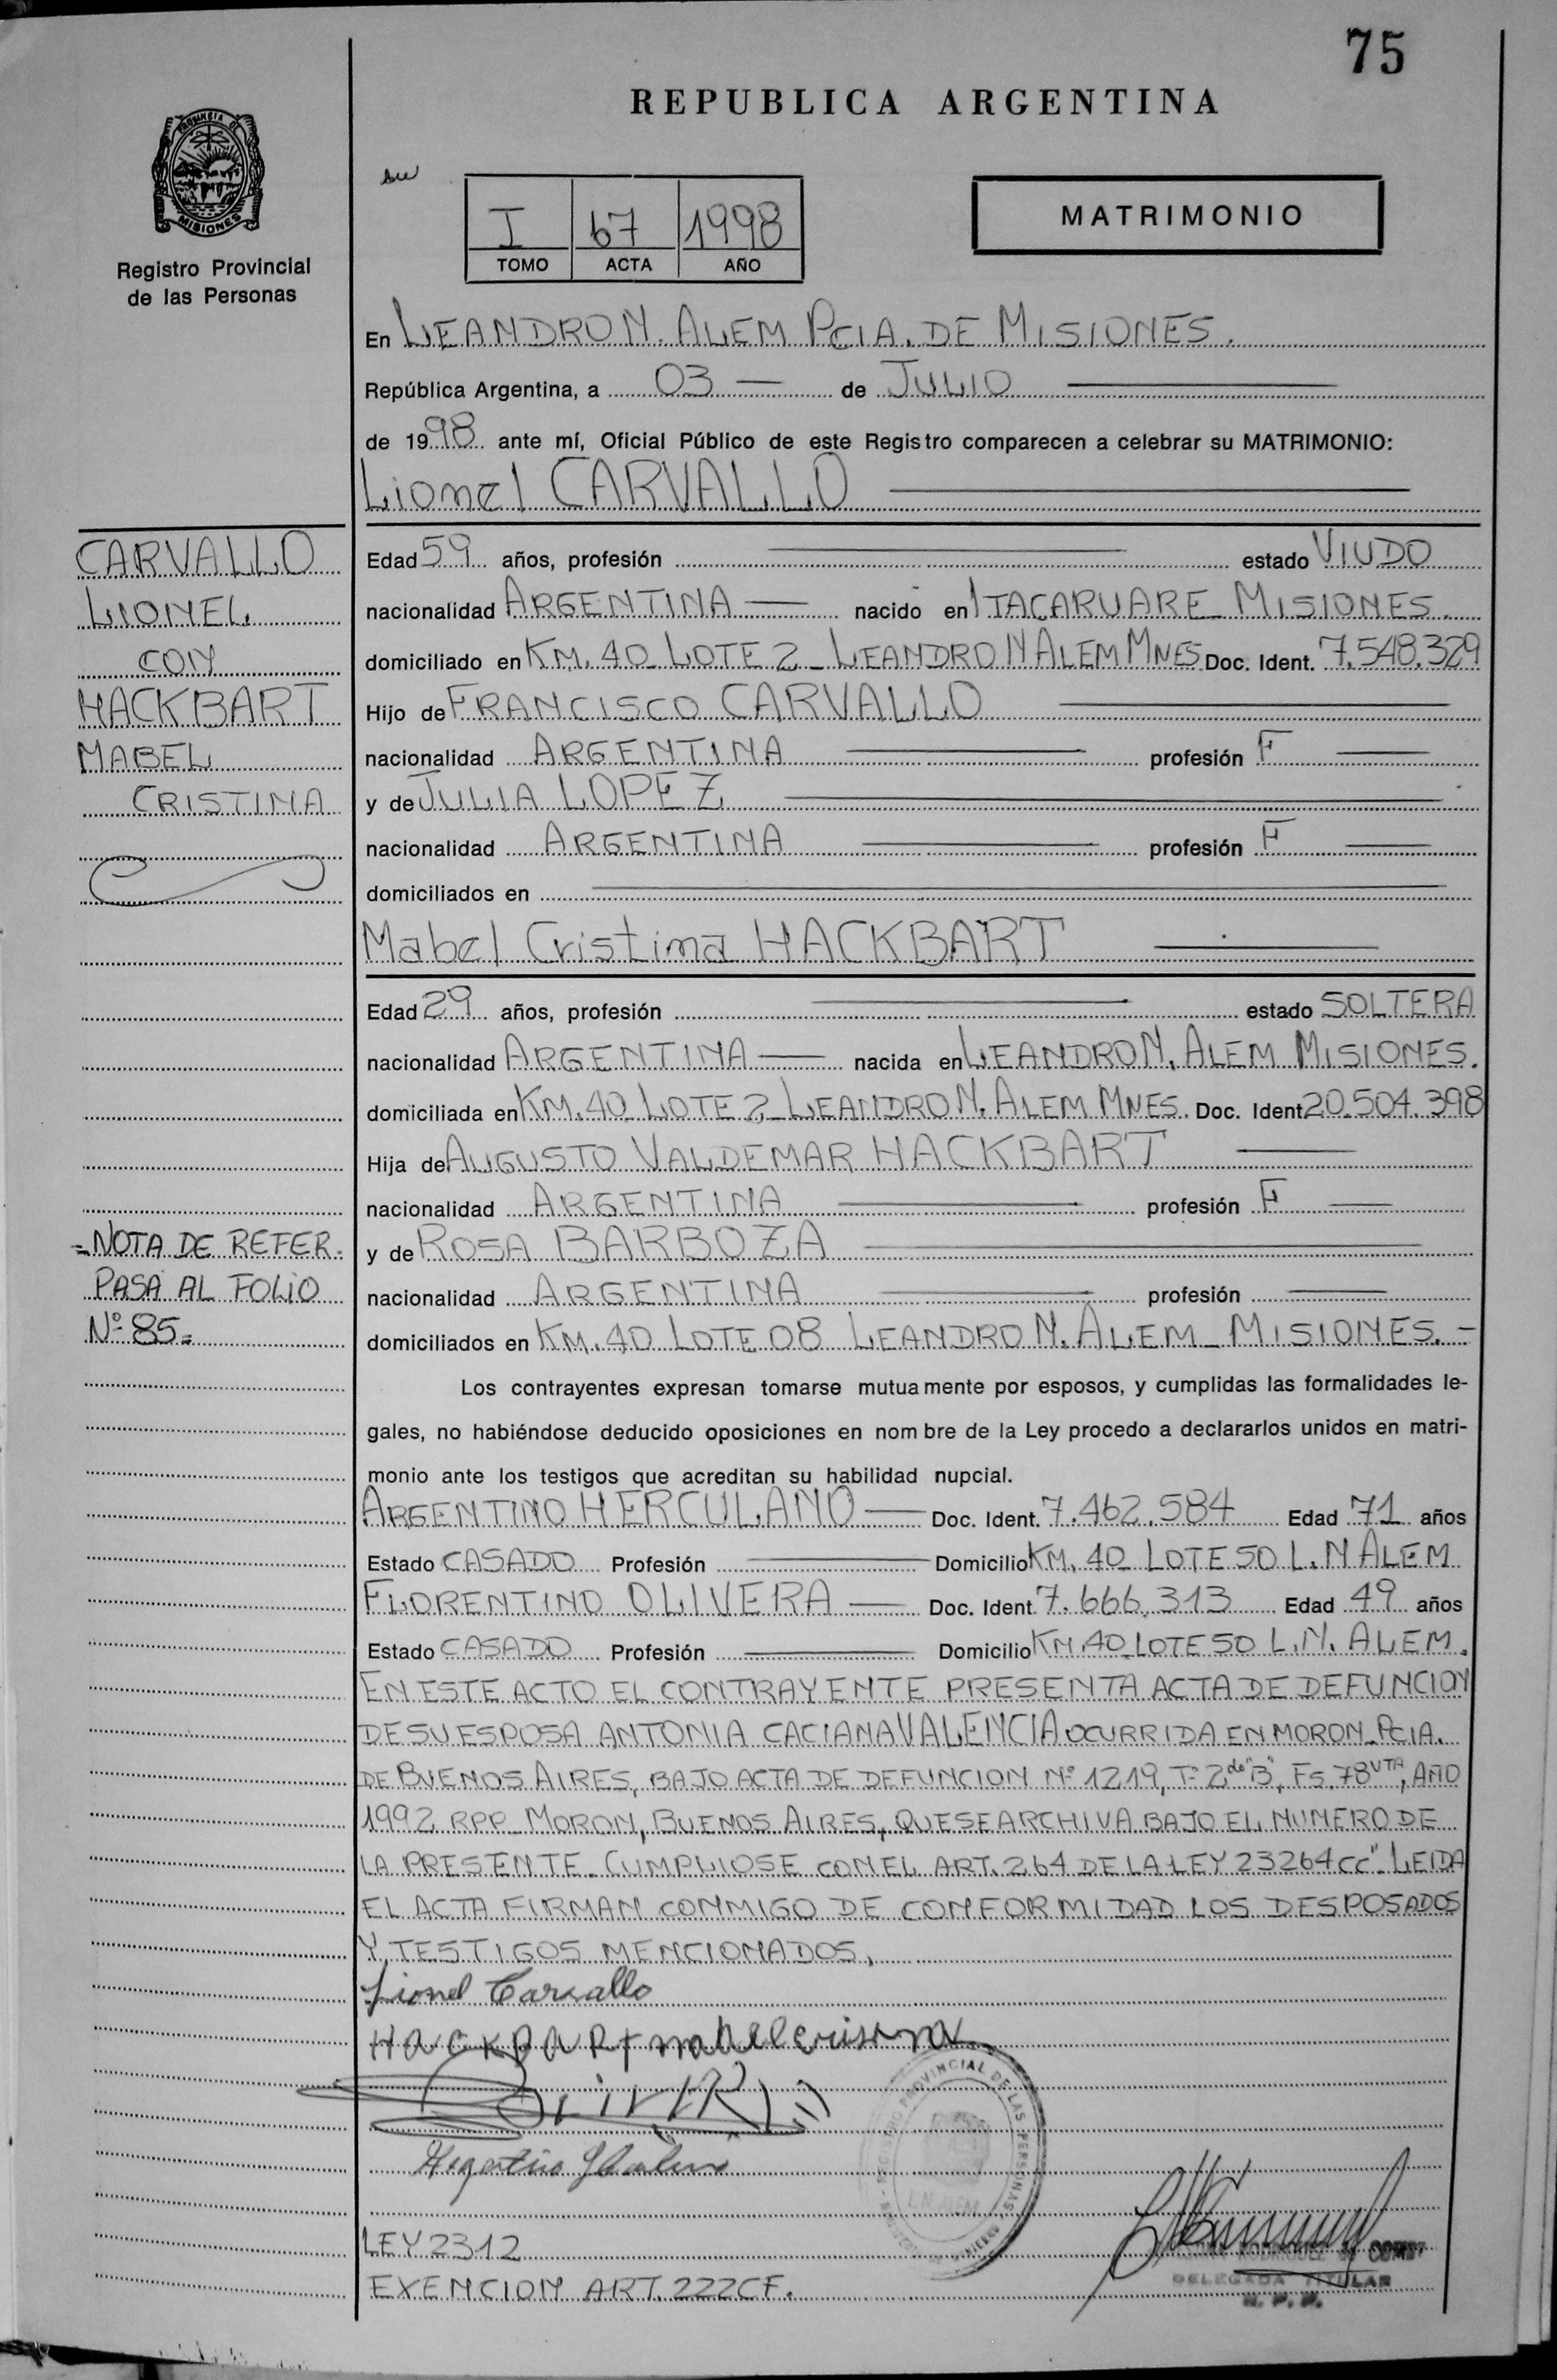 75
REPUBLICA ARGENTINA
PROVINCIA DE
MISIONES
Registro Provincial
de las Personas
I 67 1998
TOMO ACTA AÑO
MATRIMONIO
En LEANDRO N. ALEM PCIA. DE MISIONES.
República Argentina, a 03 — de JULIO
de 1998 ante mí, Oficial Público de este Registro comparecen a celebrar su MATRIMONIO:
Lionel CARVALLO
CARVALLO
LIONEL
CON
HACKBART
MABEL
CRISTINA
Edad 59 años, profesión estado VIUDO
nacionalidad ARGENTINA — nacido en ITACARUARE MISIONES.
domiciliado en KM. 40 LOTE 2 _ LEANDRO N ALEM MNES Doc. Ident. 7.548.329
Hijo de FRANCISCO CARVALLO
nacionalidad ARGENTINA profesión F
y de JULIA LOPEZ
nacionalidad ARGENTINA profesión F
domiciliados en
Mabel Cristina HACKBART
Edad 29 años, profesión estado SOLTERA
nacionalidad ARGENTINA — nacida en LEANDRO N. ALEM MISIONES.
domiciliada en KM. 40 LOTE 2 LEANDRO N. ALEM MNES. Doc. Ident 20.504.398
Hija de AUGUSTO VALDEMAR HACKBART
nacionalidad ARGENTINA profesión F
y de ROSA BARBOZA
nacionalidad ARGENTINA profesión
domiciliados en KM. 40 LOTE 08 LEANDRO N. ALEM _ MISIONES. -
=NOTA DE REFER.
PASA AL FOLIO
Nº 85=
Los contrayentes expresan tomarse mutuamente por esposos, y cumplidas las formalidades le-
gales, no habiéndose deducido oposiciones en nombre de la Ley procedo a declararlos unidos en matri-
monio ante los testigos que acreditan su habilidad nupcial.
ARGENTINO HERCULANO — Doc. Ident. 7.462.584 Edad 71 años
Estado CASADO Profesión Domicilio KM. 40 LOTE 50 L. N ALEM
FLORENTINO OLIVERA — Doc. Ident 7.666.313 Edad 49 años
Estado CASADO Profesión Domicilio KM.40 LOTE 50 L.N. ALEM.
EN ESTE ACTO EL CONTRAYENTE PRESENTA ACTA DE DEFUNCION
DE SU ESPOSA ANTONIA CACIANA VALENCIA OCURRIDA EN MORON_PCIA.
DE BUENOS AIRES, BAJO ACTA DE DEFUNCION Nº 1219, Tº 2do "B", Fs. 78 VTA, AÑO
1992 RPP_ MORON, BUENOS AIRES, QUE SE ARCHIVA BAJO EL NUMERO DE
LA PRESENTE_ CUMPLIOSE CON EL ART. 264 DE LA LEY 23264 CC"_ LEIDA
EL ACTA FIRMAN CONMIGO DE CONFORMIDAD LOS DESPOSADOS
Y TESTIGOS MENCIONADOS.
Lionel Carvallo
HACKBART mabel cristina
REGISTRO PROVINCIAL DE LAS PERSONAS
L.N. ALEM
LEY 2312
EXENCION ART. 222CF.
DELEGADA TITULAR
R. P. P.